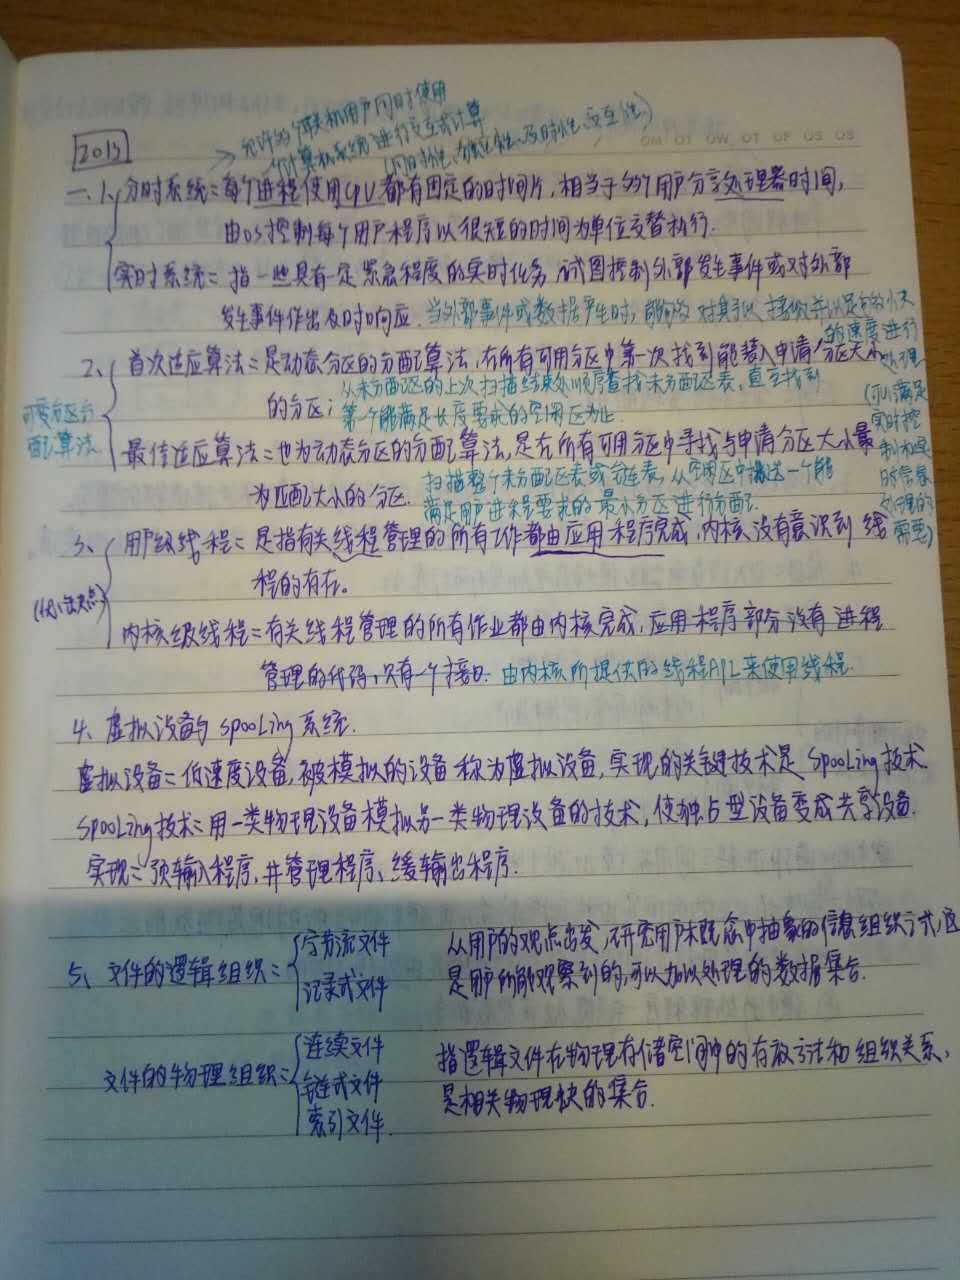 2015
允许多个联机用户同时使用
一个计算机系统进行交互式计算
(同时性、独立性、及时性、交互性)
MO TU WE TH FR SA SU
一、1、分时系统:每个进程使用CPU都有固定的时间片,相当于多个用户分享处理器时间,
由OS控制每个用户程序以很短的时间为单位交替执行.
实时系统:指一些具有一定紧急程度的实时任务,试图控制外部发生事件或对外部
发生事件作出及时响应.当外部事件或数据产生时,能够对其予以接收并以足够快
的速度进行
处理
(可以满足
实时控
制和
时信息
处理的
需要)
2、首次适应算法:是动态分区的分配算法,在所有可用分区中第一次找到能装入申请分区大小
的分区;
从未分配区的上次扫描结束处顺序查找未分配区表,直至找到
第一个能满足长度要求的空闲区为止.
可变分区分
配算法
最佳适应算法:也为动态分区的分配算法,是在所有可用分区中寻找与申请分区大小最
为匹配大小的分区.
扫描整个未分配区表或链表,从空闲区中挑选一个能
满足用户进程要求的最小分区进行分配.
3、用户级线程:是指有关线程管理的所有工作都由应用程序完成,内核没有意识到线
程的存在.
(优缺点)
内核级线程:有关线程管理的所有作业都由内核完成,应用程序部分没有进程
管理的代码,只有一个接口.由内核所提供的线程API来使用线程.
4、虚拟设备与SPOOLing系统.
虚拟设备:低速度设备,被模拟的设备称为虚拟设备,实现的关键技术是SPOOLing技术.
SPOOLing技术:用一类物理设备模拟另一类物理设备的技术,使独占型设备变成共享设备.
实现:预输入程序,井管理程序、缓输出程序.
5、文件的逻辑组织:
字节流文件
记录式文件
从用户的观点出发,研究用户概念中抽象的信息组织方式,这
是用户所能观察到的,可以加以处理的数据集合.
文件的物理组织:
连续文件
链式文件
索引文件.
指逻辑文件在物理存储空间中的存放方法和组织关系,
是相关物理块的集合.